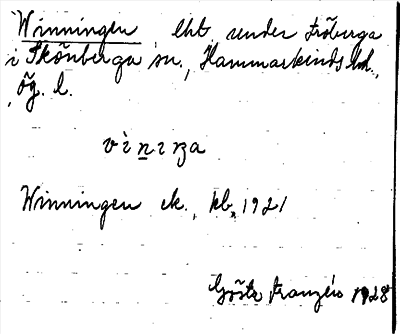 Winningen, lht under Fröberga
i Skönberga sn, Hammarkinds hd.,
Ög. l.
vìnıŋa
Winningen ek., kb, 1921
Gösta Franzén 1928